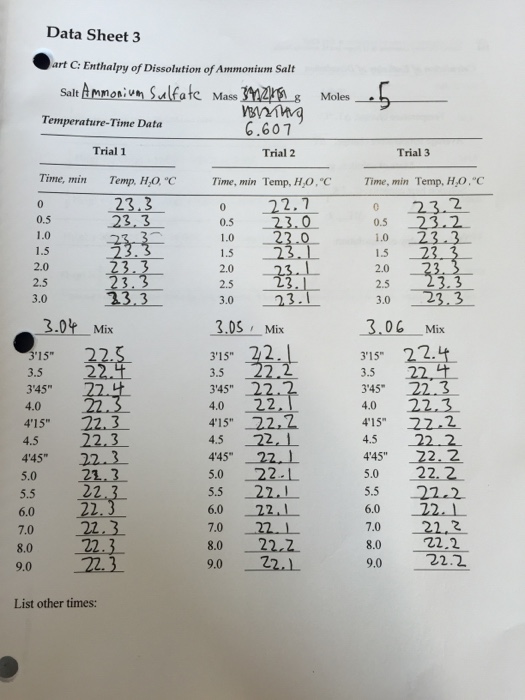 Data Sheet 3
art C: Enthalpy of Dissolution of Ammonium Salt
Salt Ammonium Sulfate Mass g Moles .5
6.607
Temperature-Time Data
Trial 1 Trial 2 Trial 3
Time, min Temp, H₂O, °C Time, min Temp, H₂O, °C Time, min Temp, H₂O, °C
0 23.3 0 22.7 0 23.2
0.5 23.3 0.5 23.0 0.5 23.2
1.0 23.3 1.0 23.0 1.0 23.3
1.5 23.3 1.5 23.1 1.5 23.3
2.0 23.3 2.0 23.1 2.0 23.3
2.5 23.3 2.5 23.1 2.5 23.3
3.0 23.3 3.0 23.1 3.0 23.3
3.04 Mix 3.05 Mix 3.06 Mix
3'15" 22.5 3'15" 22.1 3'15" 22.4
3.5 22.4 3.5 22.2 3.5 22.4
3'45" 22.4 3'45" 22.2 3'45" 22.3
4.0 22.3 4.0 22.1 4.0 22.3
4'15" 22.3 4'15" 22.2 4'15" 22.2
4.5 22.3 4.5 22.1 4.5 22.2
4'45" 22.3 4'45" 22.1 4'45" 22.2
5.0 22.3 5.0 22.1 5.0 22.2
5.5 22.3 5.5 22.1 5.5 22.2
6.0 22.3 6.0 22.1 6.0 22.1
7.0 22.3 7.0 22.1 7.0 22.2
8.0 22.3 8.0 22.2 8.0 22.2
9.0 22.3 9.0 22.1 9.0 22.2
List other times: